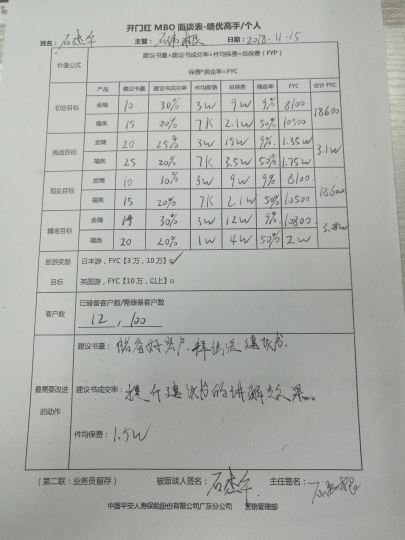 开门红 MBO 面谈表-绩优高手/个人
姓名: 主管: 日期: 2018-11-15
价值公式 建议书量*建议书成交率*件均保费=总保费(FYP)
保费*佣金率=FYC
产品 建议书量 建议书成交率 件均保费 总保费 佣金率 FYC 合计FYC
初定目标 金瑞 10 30% 3W 9W 9% 8100 18600
福类 15 20% 7K 2.1W 50% 10500
挑战目标 金瑞 20 25% 3W 15W 9% 1.35W 3.1W
福类 25 20% 7K 3.5W 50% 1.75W
现实目标 金瑞 10 30% 3W 9W 9% 8100 18600
福类 15 20% 7K 2.1W 50% 10500
精准目标 金瑞 14 30% 3W 12W 9% 10800
福类 20 20% 1W 4W 50% 2W
旅游奖励 日本游,FYC【3万,10万】☑
目标 英国游,FYC【10万,以上】□
客户数 已储备客户数/需储备客户数
12 , 100
最需要改进的动作 建议书量:储备好客户、
建议书成交率:提升建议书的讲解效果。
件均保费:1.5W
(第二联:业务员留存) 被面谈人签名: 主任签名:
中国平安人寿保险股份有限公司广东分公司 营销管理部